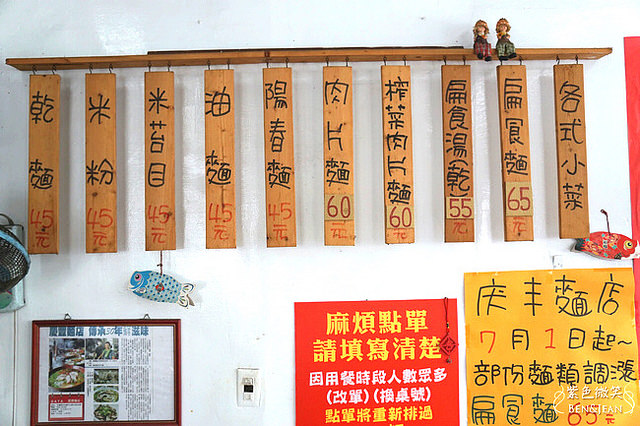 乾麵 45元
米粉 45元
米苔目 45元
油麵 45元
陽春麵 45元
肉片麵 60元
榨菜肉片麵 60元
扁食湯(乾) 55元
扁食麵 65元
各式小菜
慶豐麵店 傳承30年鮮滋味
麻煩點單
請填寫清楚
因用餐時段人數眾多
(改單)(換桌號)
點單將重新排過
庆丰麵店
7月1日起~
部份麵類調漲
扁食麵65元
紫色微笑
BENGJEAN